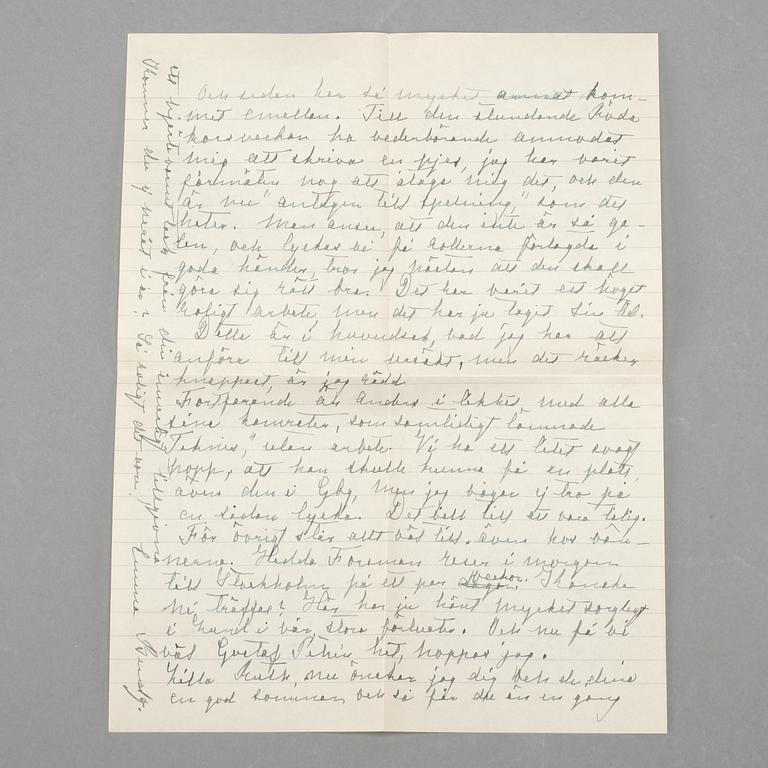 Och sedan har så mycket annat kom-
met emellan. Till den stundande Röda
korsveckan ha vederbörande anmodat
mig att skriva en pjes, jag har varit
förmäten nog att åtaga mig det, och den
är nu "antagen till spelning," som det
heter. Man anser, att den inte är så ga-
len, och lyckas vi få rollerna förlagda i
goda händer, tror jag nästan att den skall
göra sig rätt bra. Det har varit ett högst
roligt arbete men det har ju tagit sin tid.
Detta är i huvudsak, vad jag har att
anföra till min ursäkt, men det räcker
knappast, är jag rädd.
Fortfarande är Anders i likhet med alla
sina kamrater, som samtidigt lämnade
"Teknis," utan arbete. Vi ha ett litet svagt
hopp, att han skulle kunna få en plats,
även den i Gbg, men jag vågar ej tro på
en sådan lycka. Det till att vara tålig.
För övrigt står allt väl till, även hos van-
nerna. Hedda Forsman reser i morgon
till Stockholm på ett par dagar veckor. Kanske
Ni träffas? Här har ju hänt mycket sorgligt
i i vår, stora förluster. Och nu få vi
väl Gustaf hit, hoppas jag.
Lilla Ruth, nu önskar jag dig och de dina
en god sommar, och så får du än en gång
ett hjärtevarmt tack från din innerligt tillgivna
Emma
Kommer du ej neråt i år? Så roligt det vore!